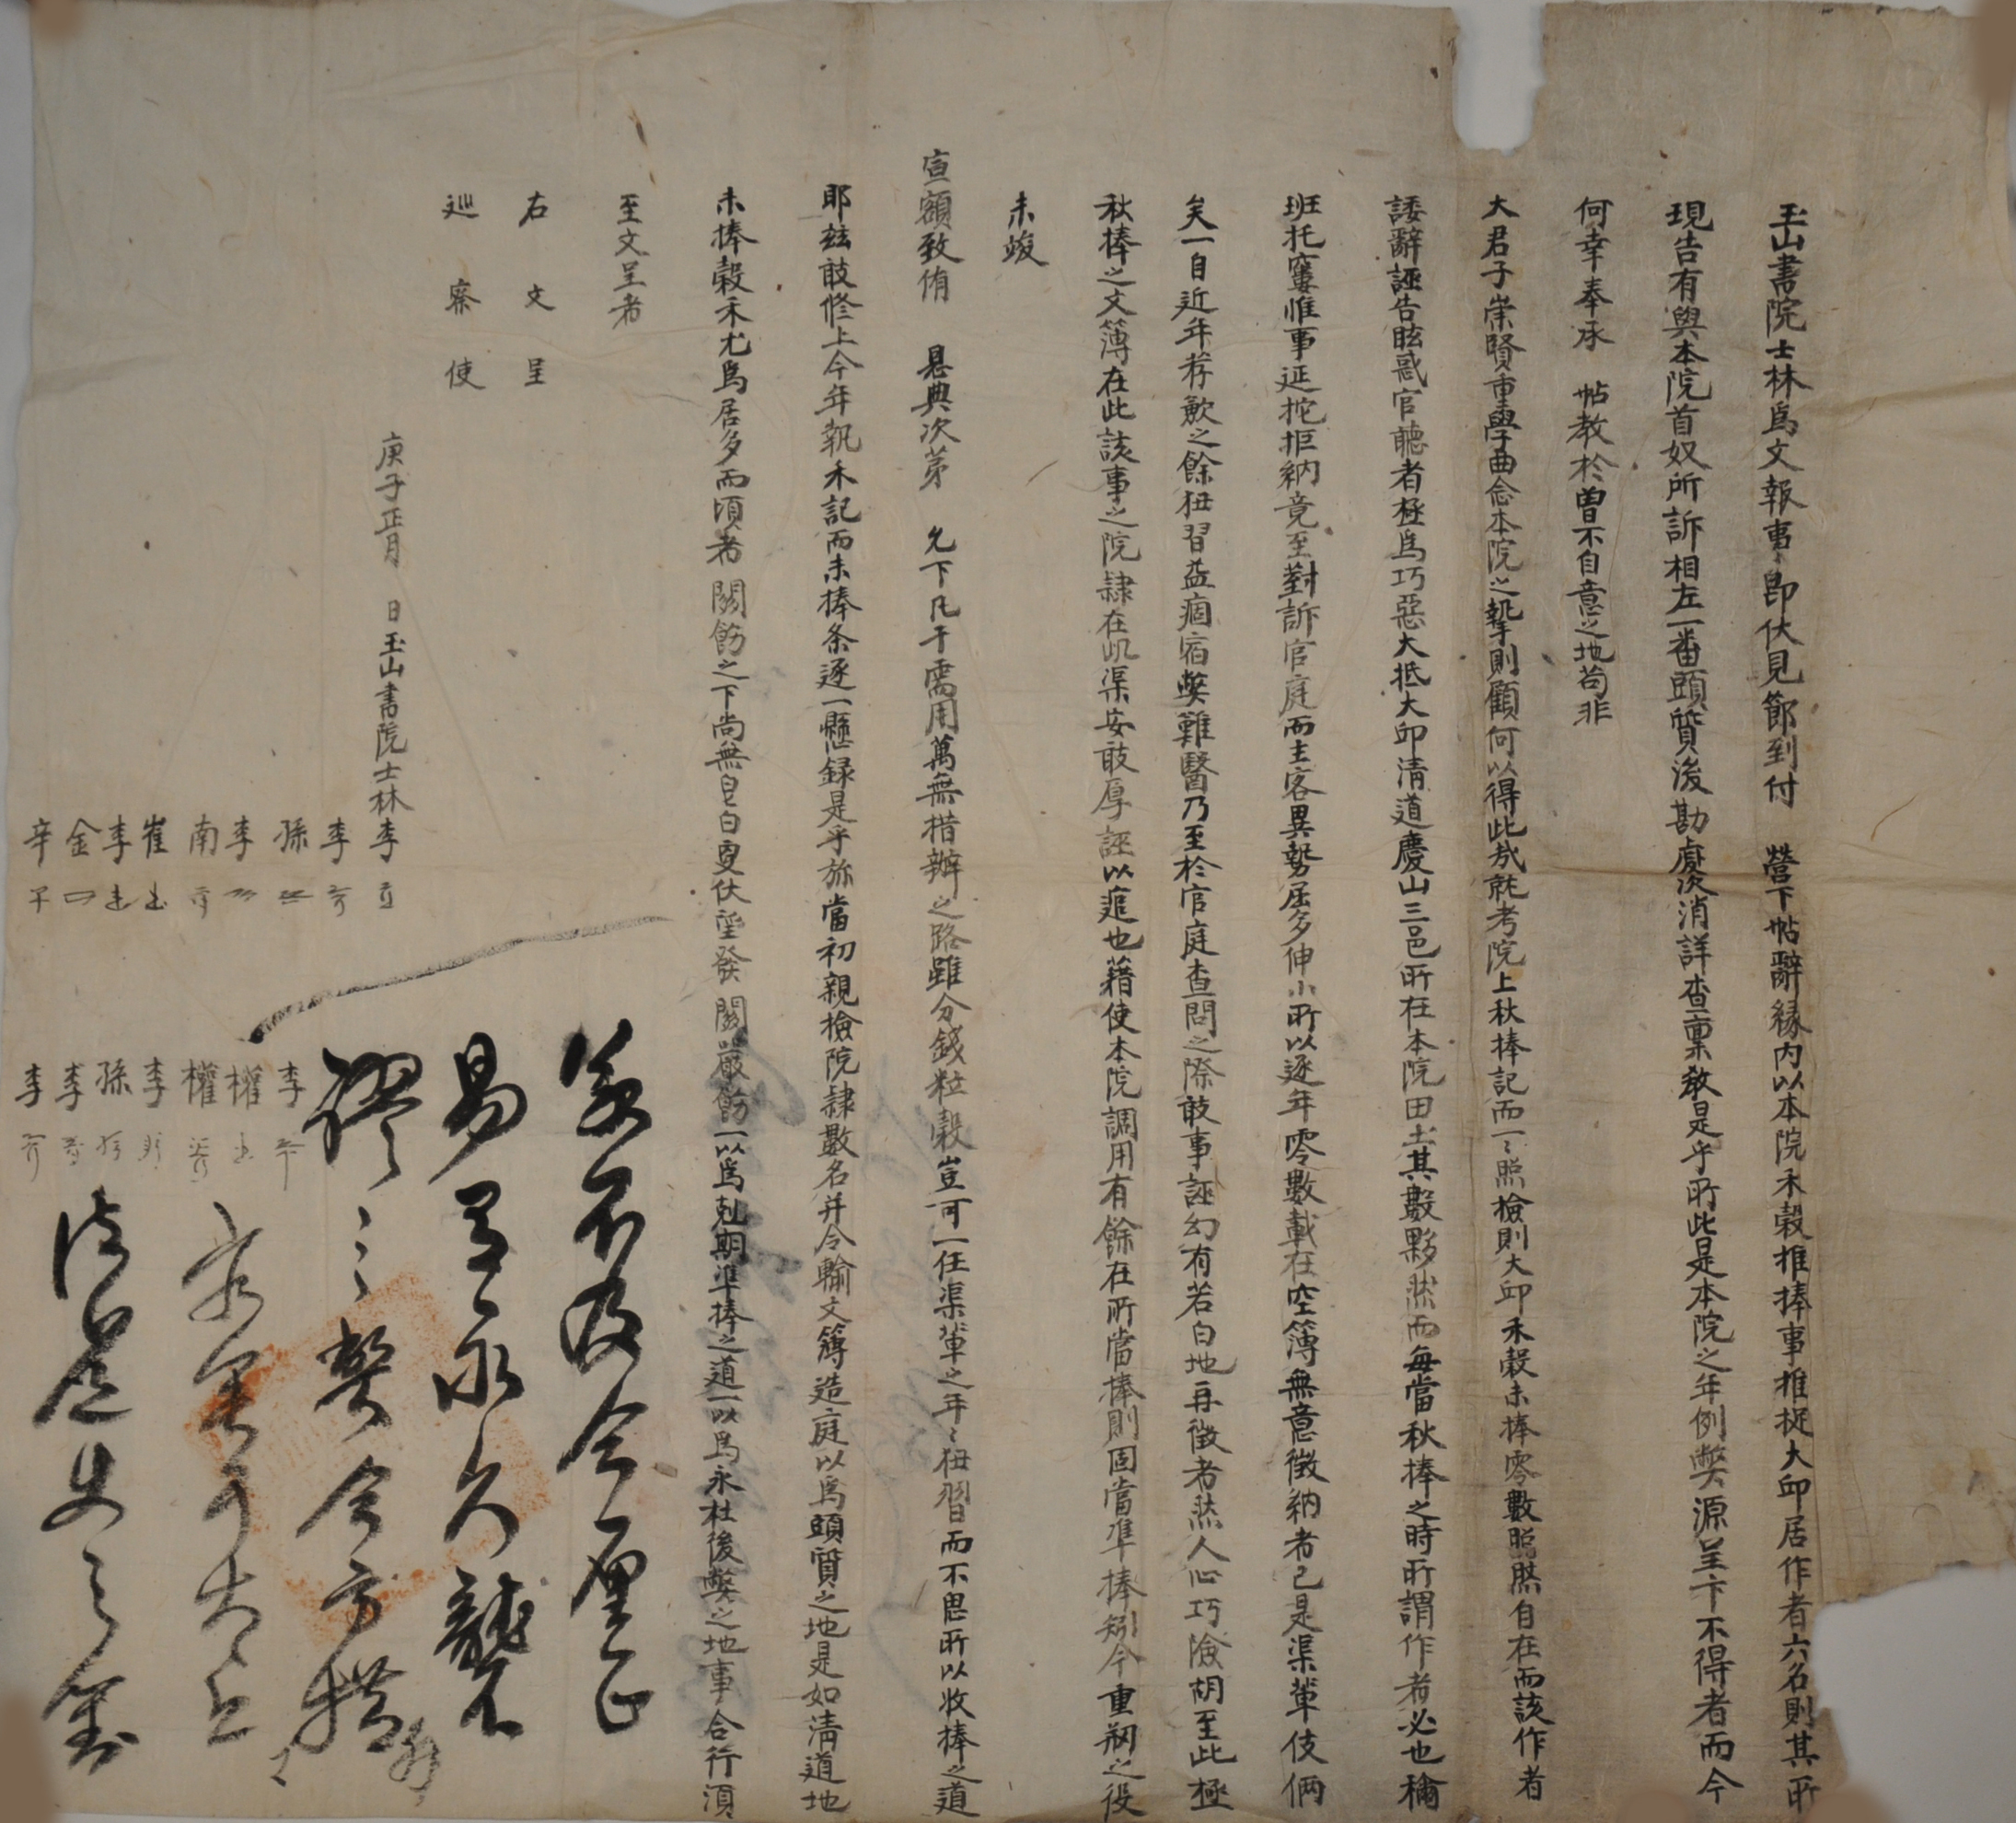 玉山書院士林爲文報事卽伏見節到付 營下帖辭緣內以本院禾穀推捧事推捉大邱居作者六名則其所
現告有與本院首奴所訴相左一番頭質後勘處次消詳查稟敎是乎所此是本院之年例弊源呈卞不得者而今
何幸奉承 帖敎於曾不自意之地苟非
大君子崇賢重學曲念本院之摯則顧何以得此哉就考院上秋捧記而一〻照檢則大邱禾穀未捧零數昭然自在而該作者
諉辭誣告眩惑官聽者極爲巧惡大抵大邱淸道慶山三邑所在本院田土其數夥然而每當秋捧之時所謂作者必也稱
班托窶惟事延拖拒納竟至對訴官庭而主客異勢屈多伸小所以逐年零數載在空簿無意徵納者已是渠輩伎倆
矣一自近年荐歉之餘狃習益痼宿弊難醫乃至於官庭查問之際敢事誣幻有若白地再徵者然人心巧險胡至此極
秋捧之文簿在此該事之院隷在此渠安敢厚誣以逭也藉使本院調用有餘在所當捧則固當準捧矧今重刱之役
未竣
宣額致侑 恩典次第 允下凡干需用萬無措辦之路雖分錢粒穀豈可一任渠輩之年〻狃習而不思所以收捧之道
耶玆敢修上今年執禾記而未捧条逐一懸錄是乎旀當初親檢院隷數名幷令輸文簿造庭以爲頭質之地是如淸道地
未捧穀禾尤爲居多而頃者 關飭之下尙無皂白更伏望發 關嚴飭一以爲剋期準捧之道一以爲永杜後弊之地事合行須
至文呈者
右文呈
巡察使
庚子正月 日玉山書院士林李
李
孫
李
南
崔
李
金
辛
李
權
權
李
孫
李
李
不及今釐正
易至永久襲
謬〻弊令方措